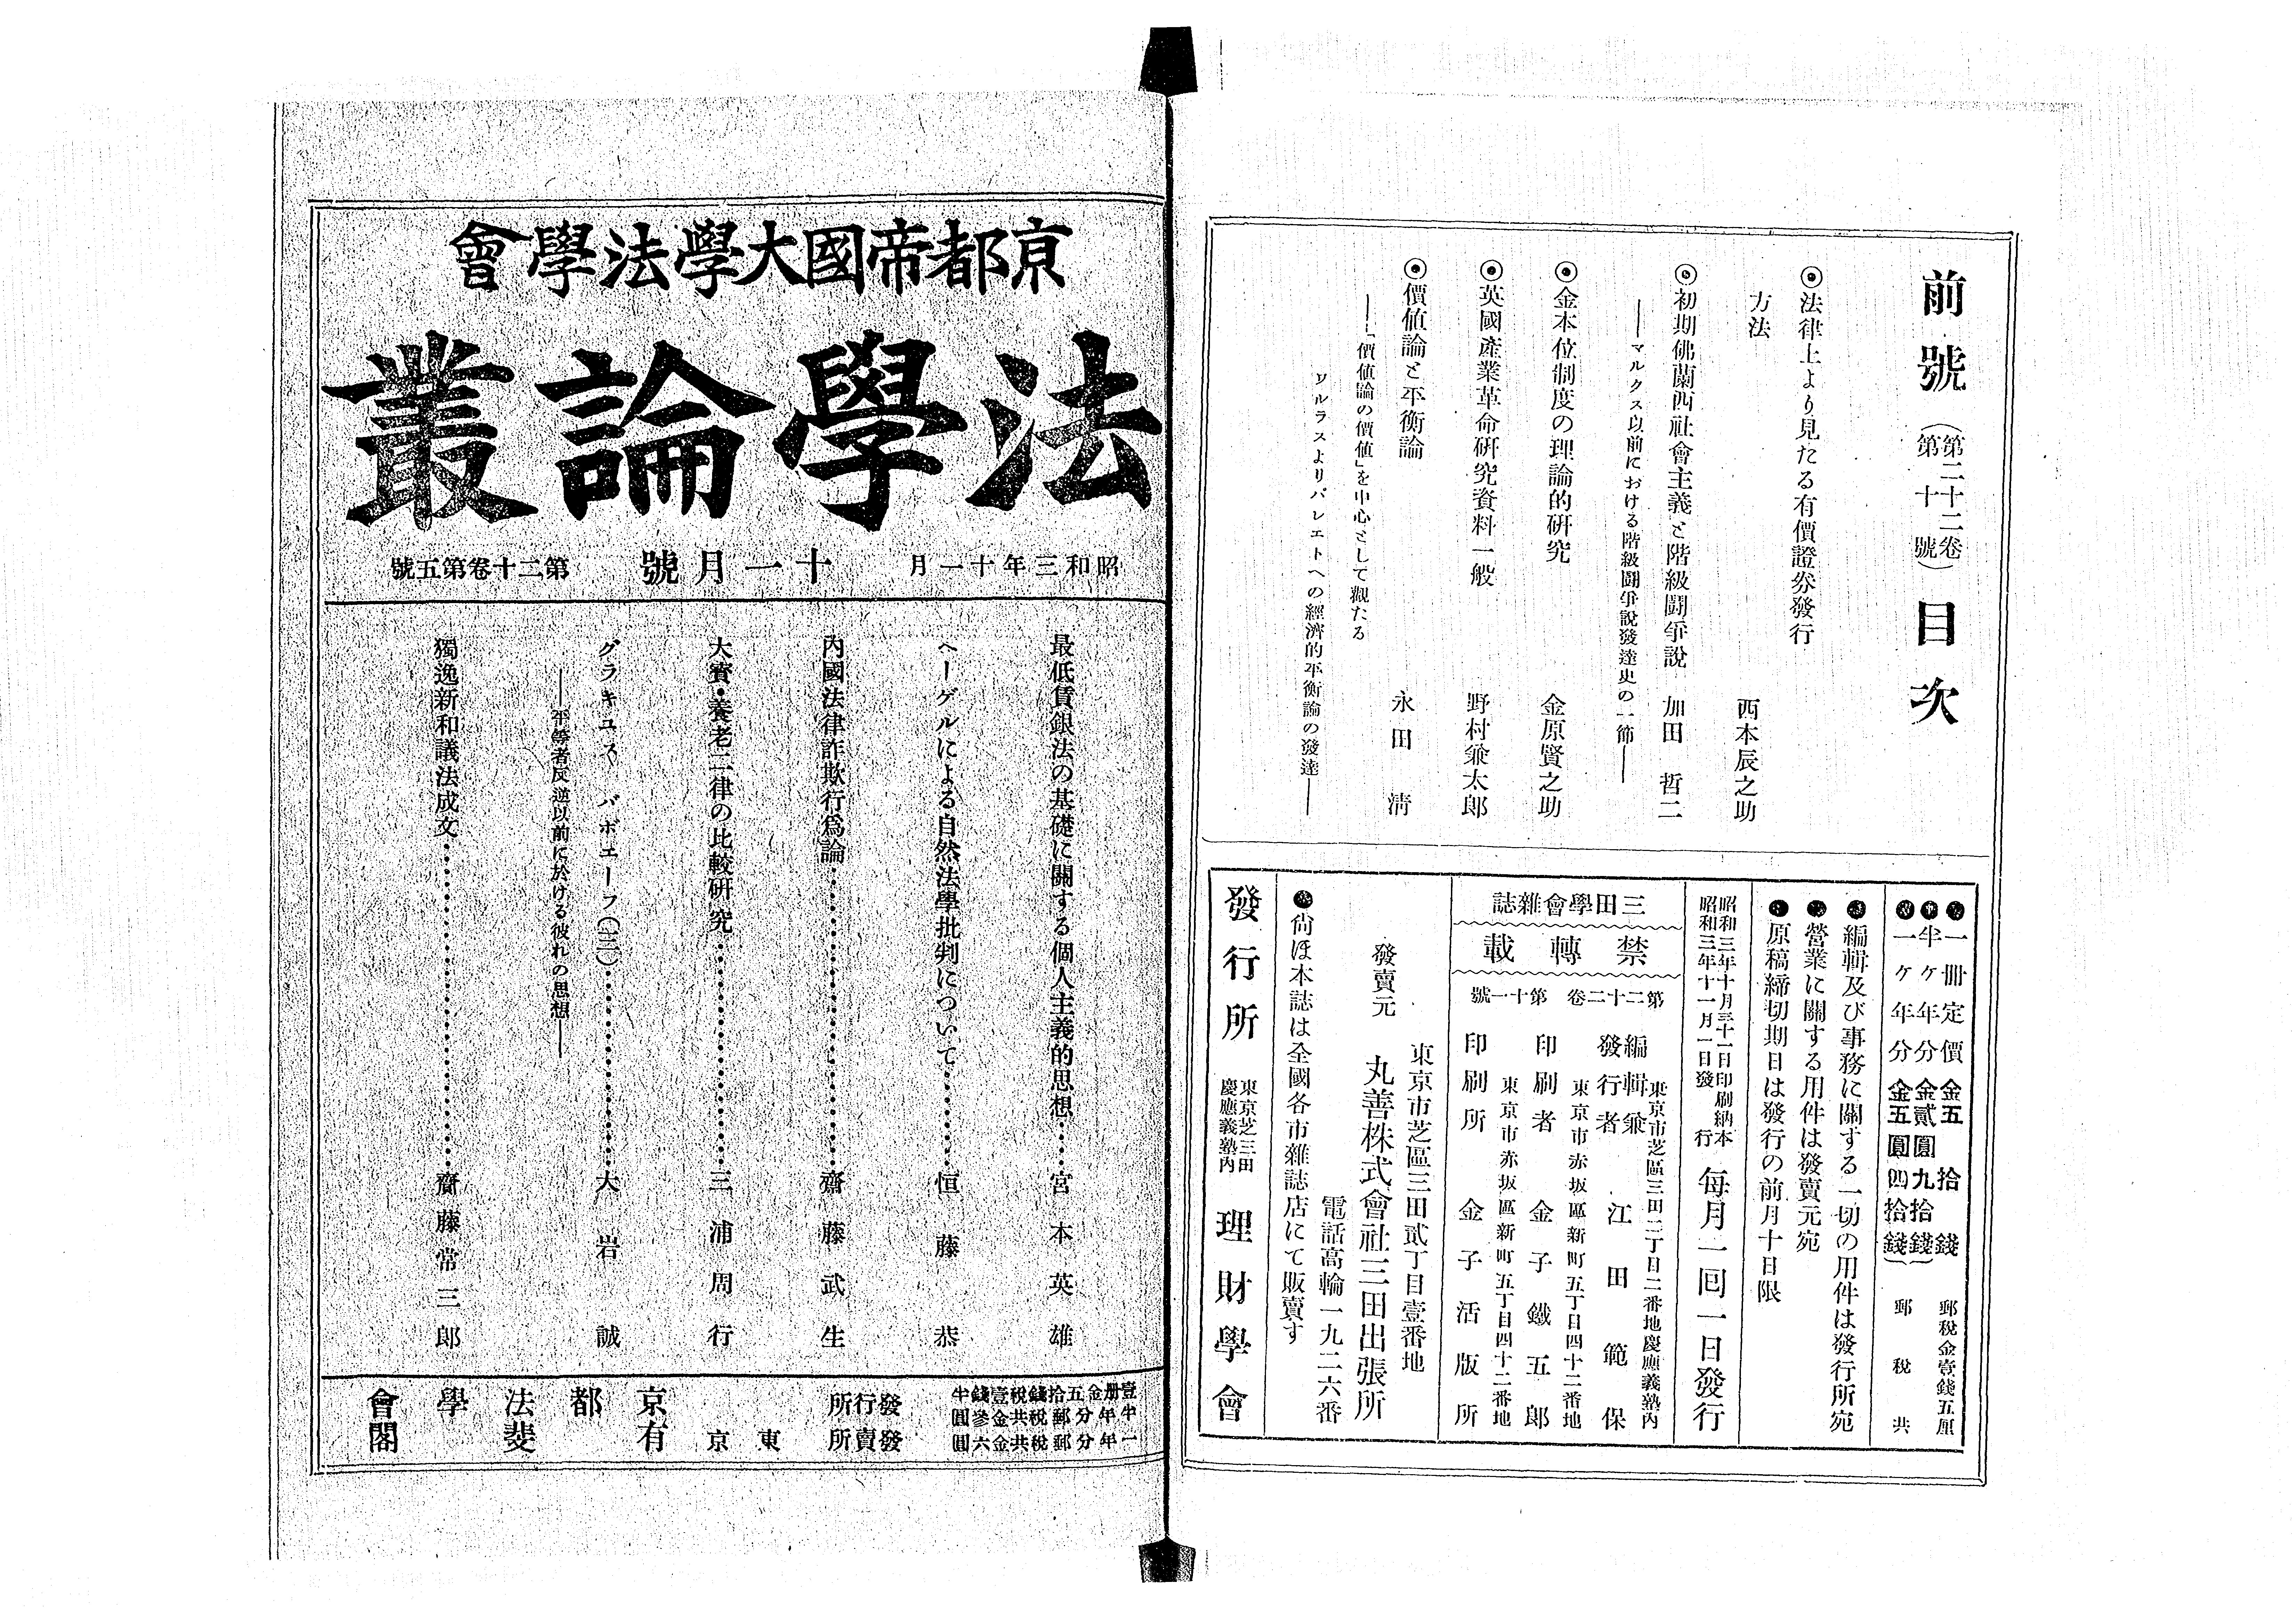 前號（第二十二卷第十號）目次
◉法律上より見たる有價證券發行
方法　西本辰之助
◉初期佛蘭西社會主義と階級鬪爭說　加田哲二
――マルクス以前における階級鬪爭說發達史の一節――
◉金本位制度の理論的硏究　金原賢之助
◉英國產業革命硏究資料一般　野村兼太郎
◉價値論と平衡論　永田淸
――「價値論の價値」を中心として觀たる
ワルラスよりパレエトへの經濟的平衡論の發達――
●一冊定價　金五拾錢　郵稅金壹錢五厘
●半ケ年分　金貳圓九拾錢
●一ケ年分　金五圓四拾錢
郵稅共
●編輯及び事務に關する一切の用件は發行所宛
●營業に關する用件は發賣元宛
●原稿締切期日は發行の前月十日限
昭和三年十月三十一日印刷納本
昭和三年十一月一日發行
每月一囘一日發行
三田學會雜誌
禁轉載
第二十二卷　第十一號
東京市芝區三田二丁目二番地慶應義塾內
編輯兼發行者　江田範保
東京市赤坂區新町五丁目四十二番地
印刷者　金子鐵五郎
東京市赤坂區新町五丁目四十二番地
印刷所　金子活版所
東京市芝區三田貳丁目壹番地
發賣元　丸善株式會社三田出張所
電話高輪一九二六番
●尙ほ本誌は全國各市雜誌店にて販賣す
發行所　東京芝三田慶應義塾內　理財學會
京都帝國大學法學會
法學論叢
昭和三年十一月　十一月號　第二十卷第五號
最低賃銀法の基礎に關する個人主義的思想……宮本英雄
ヘーゲルによる自然法學批判について……恒藤恭
內國法律詐欺行爲論……齋藤武生
大寶・養老二律の比較硏究……三浦周行
グラキユス バボエーフ（三）……大岩誠
――平等者反逆以前に於ける彼れの思想――
獨逸新和議法成文……齋藤常三郎
壹册金五拾錢稅壹錢半
半年分郵稅共金參圓
一年分郵稅共金六圓
發行所　京都法學會
發賣所　東京　有斐閣